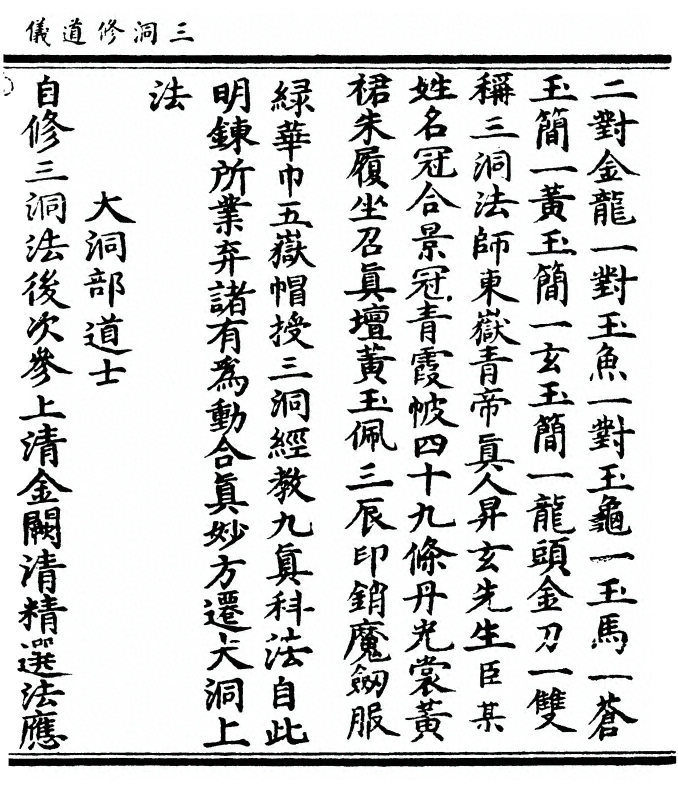 三洞修道儀
二對金龍一對玉魚一對玉龜一玉馬一蒼
玉簡一黃玉簡一玄玉簡一龍頭金刀一雙
稱三洞法師東嶽青帝眞人昇玄先生臣某
姓名冠合景冠青霞帔四十九條丹光裳黃
裙朱履坐召眞壇黃玉佩三辰印銷魔劔服
緑華巾五嶽帽授三洞經教九眞科法自此
明鍊所業弃諸有為動合眞妙方遷大洞上
法
大洞部道士
自修三洞法後次參上清金闕清精選法應